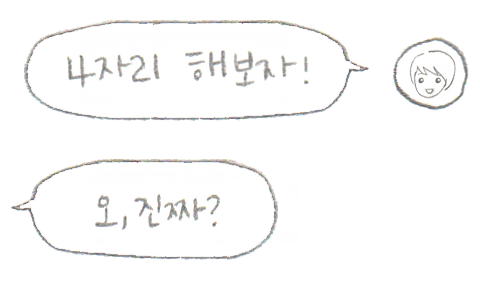 4자리 해보자!
오, 진짜?